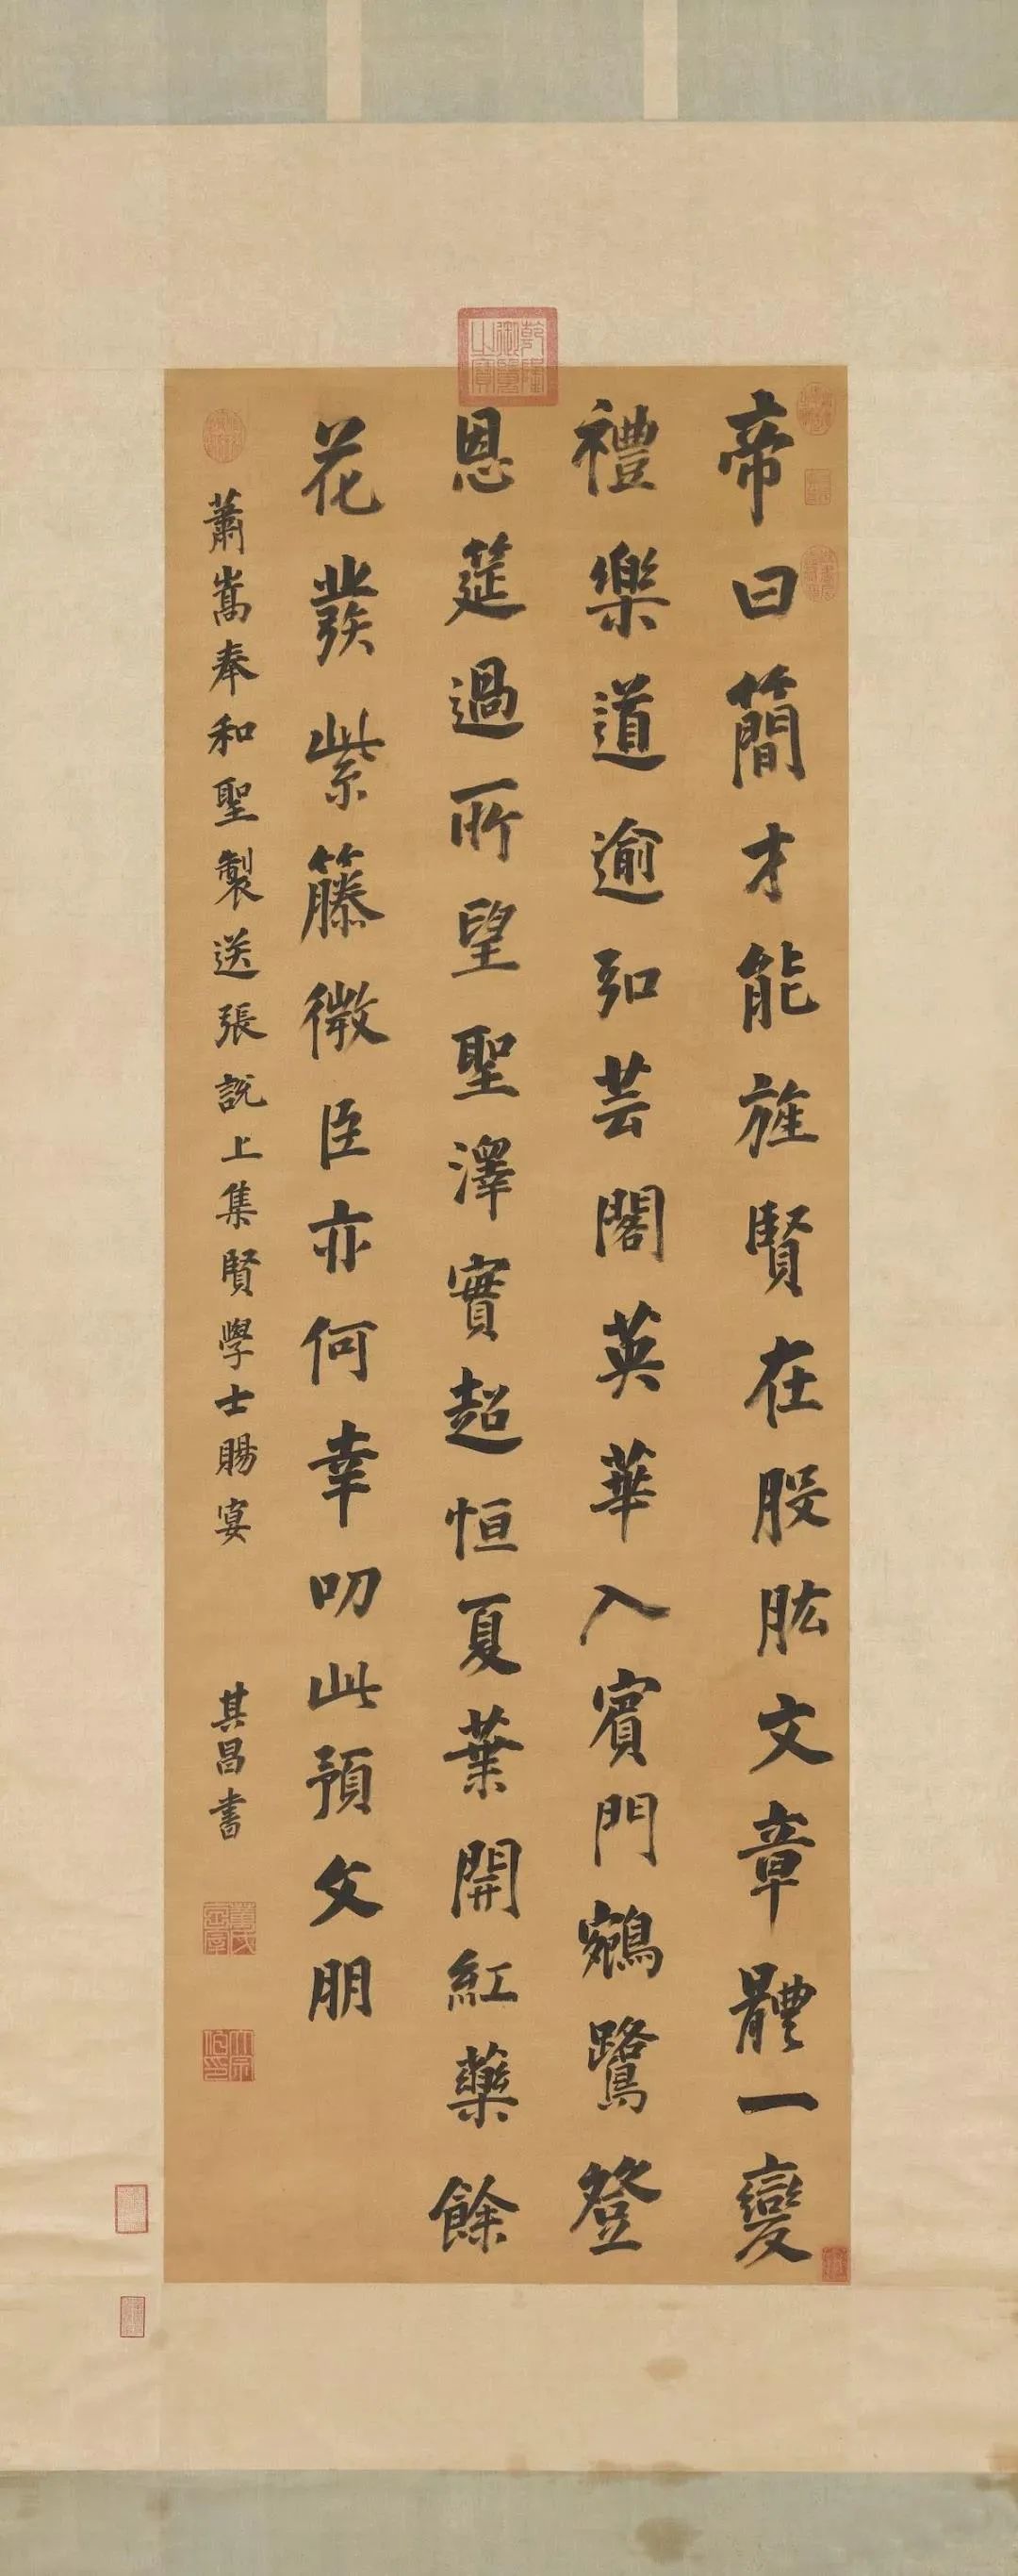 帝曰簡才能旌賢在股肱文章體一變
禮樂道逾弘芸閣英華入賓門鵷鷺登
恩筵過所望聖澤實超恒夏葉開紅藥餘
花發紫藤微臣亦何幸叨此預文朋
蕭嵩奉和聖製送張說上集賢學士賜宴
其昌書
乾隆御覽之寶